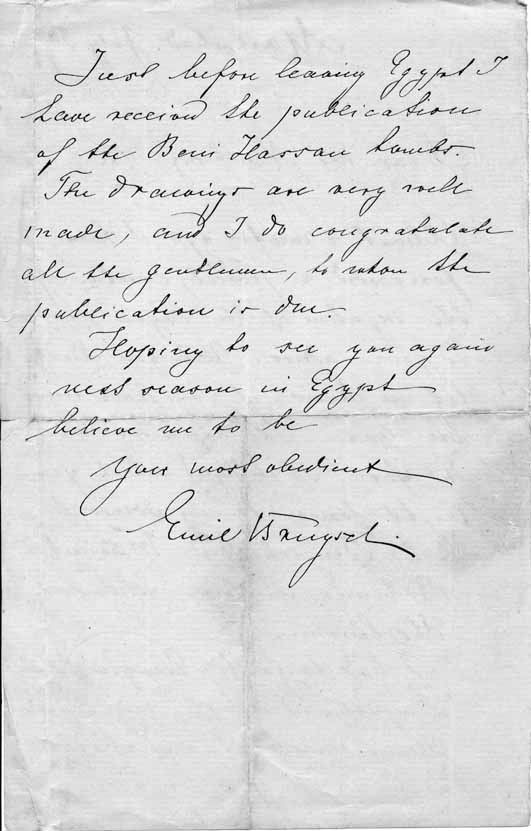 Just before leaving Egypt I
have received the publication
of the Beni Hassan tombs.
The drawings are very well
made, and I do congratulate
all the gentlemen, to whom the
publication is due.
Hoping to see you again
next season in Egypt
believe me to be
Your most obedient
Emil Brugsch.